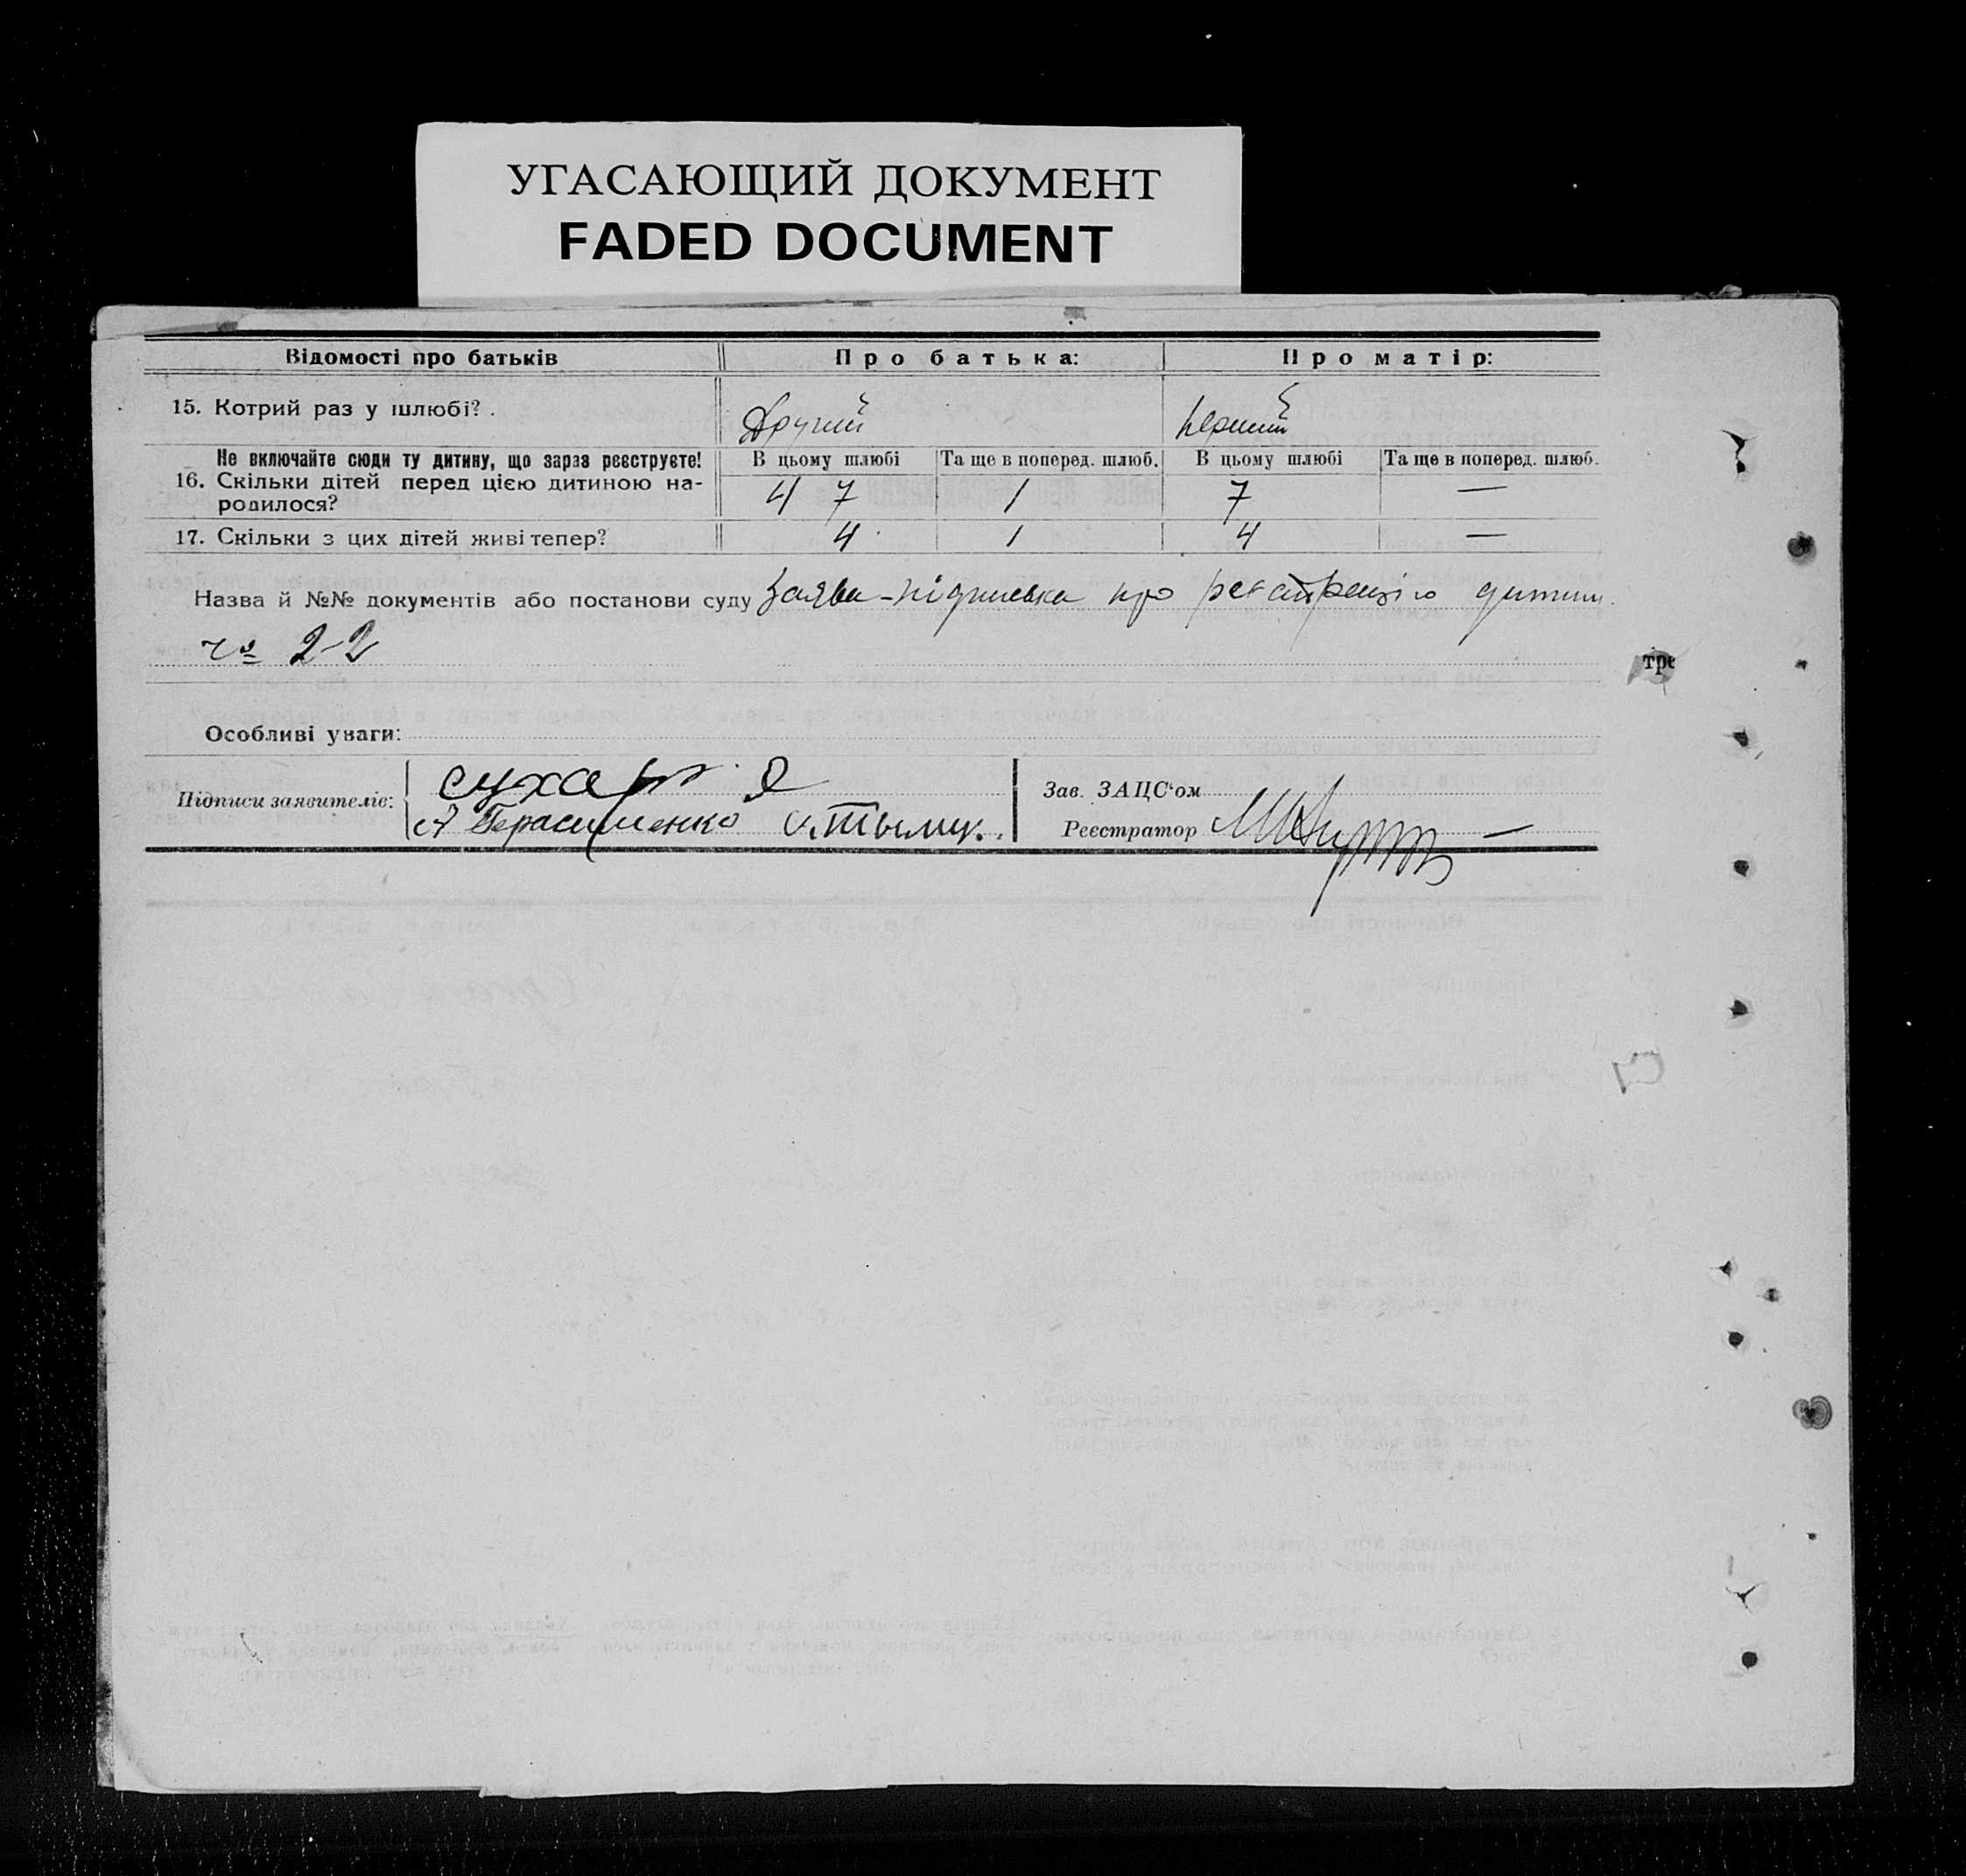 УГАСАЮЩИЙ ДОКУМЕНТ
FADED DOCUMENT
Відомості про батьків Про батька: Про матір:
15. Котрий раз у шлюбі? . Другий Перший
Не включайте сюди ту дитину, що зараз реєструєте! В цьому шлюбі Та ще в поперед. шлюб. В цьому шлюбі Та ще в поперед. шлюб.
16. Скільки дітей перед цією дитиною на- 4 7 1 7 —
родилося?
17. Скільки з цих дітей живі тепер? 4 1 4 —
Назва й №№ документів або постанови суду Заява-підписка про реєстрацію дитини
№ 22
тре
Особливі уваги:
Підписи заявителів: сухар Я
Герасименко
Зав. ЗАЦС'ом
Реєстратор